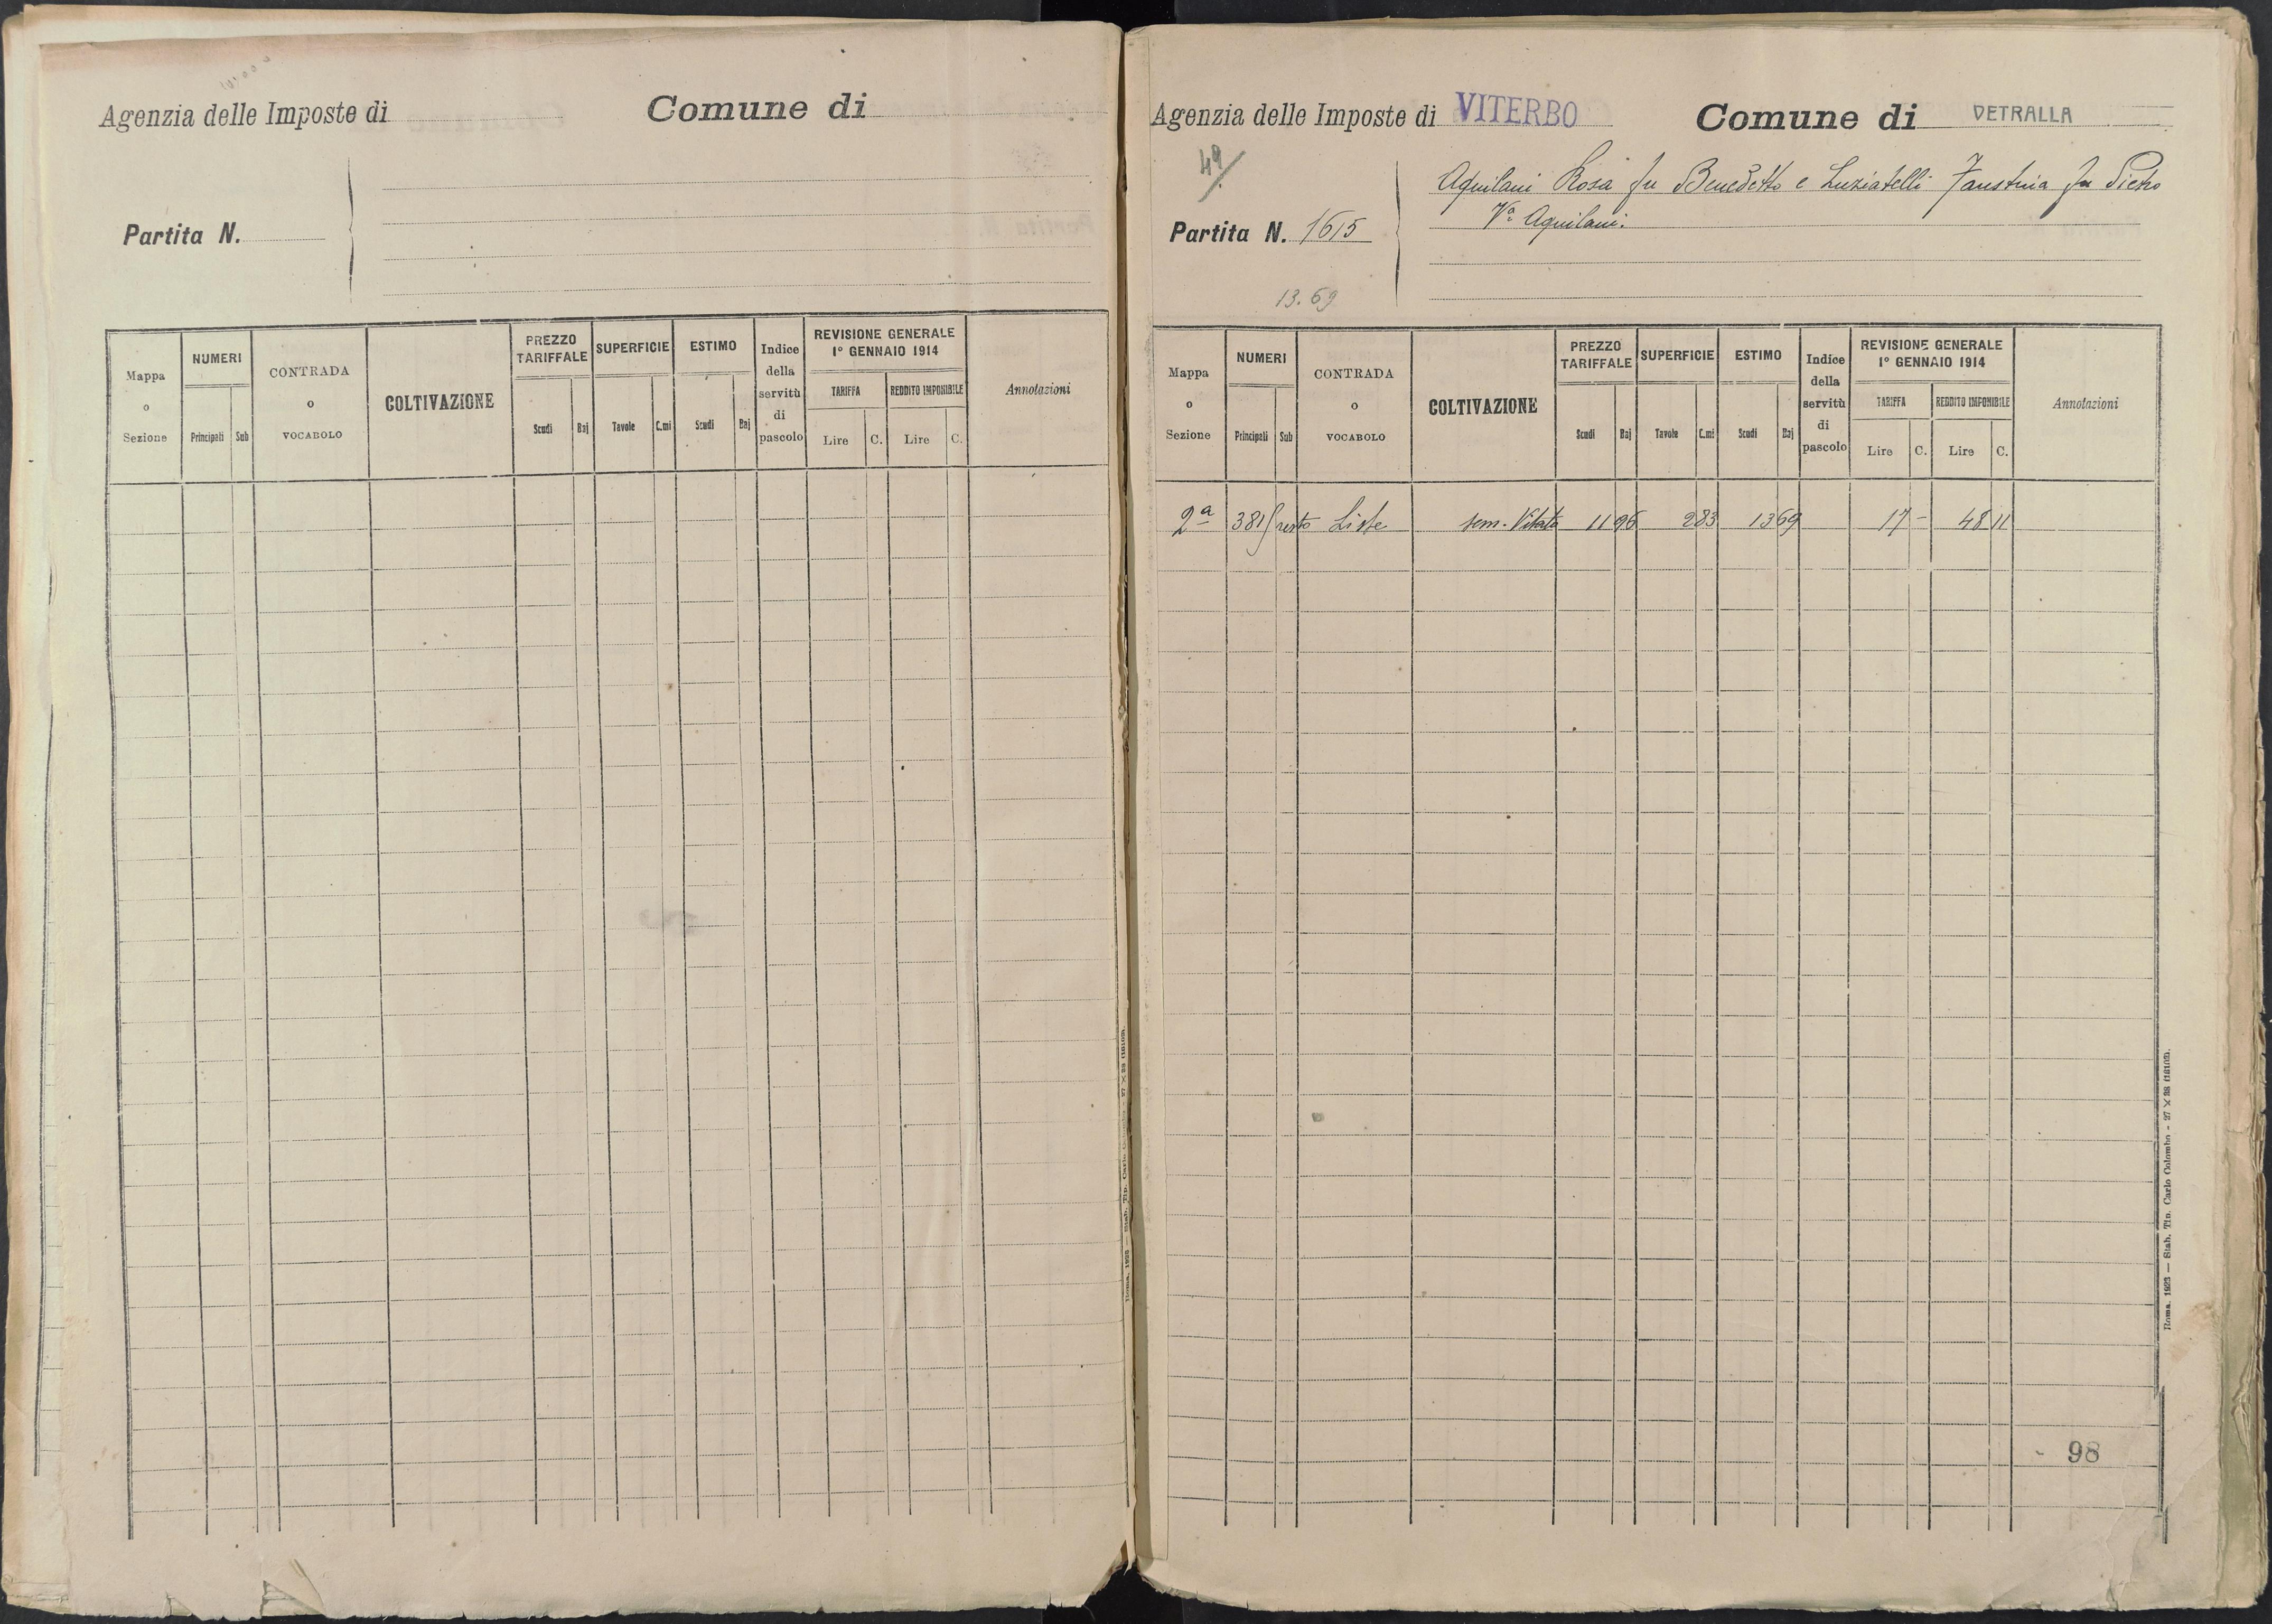 Agenzia delle Imposte di Comune di
Partita N.
Mappa o Sezione
NUMERI
Principali Sub
CONTRADA o VOCABOLO
COLTIVAZIONE
PREZZO TARIFFALE
Scudi Baj
SUPERFICIE
Tavole C.mi
ESTIMO
Scudi Baj
Indice della servitù di pascolo
REVISIONE GENERALE
1° GENNAIO 1914
TARIFFA REDDITO IMPONIBILE
Lire C. Lire C.
Annotazioni
Agenzia delle Imposte di VITERBO Comune di VETRALLA
49
Aquilani Rosa fu Benedetto e Luziatelli Faustina fu Pietro
Vª Aquilani.
Partita N. 1615
13.69
Mappa o Sezione
NUMERI
Principali Sub
CONTRADA o VOCABOLO
COLTIVAZIONE
PREZZO TARIFFALE
Scudi Baj
SUPERFICIE
Tavole C.mi
ESTIMO
Scudi Baj
Indice della servitù di pascolo
REVISIONE GENERALE
1° GENNAIO 1914
TARIFFA REDDITO IMPONIBILE
Lire C. Lire C.
Annotazioni
2ª 381 resto Liste sem. Vitato 11 96 2 83 13 69 17 - 48 11
98
Roma, 1923 — Stab. Tip. Carlo Colombo - 27 X 38